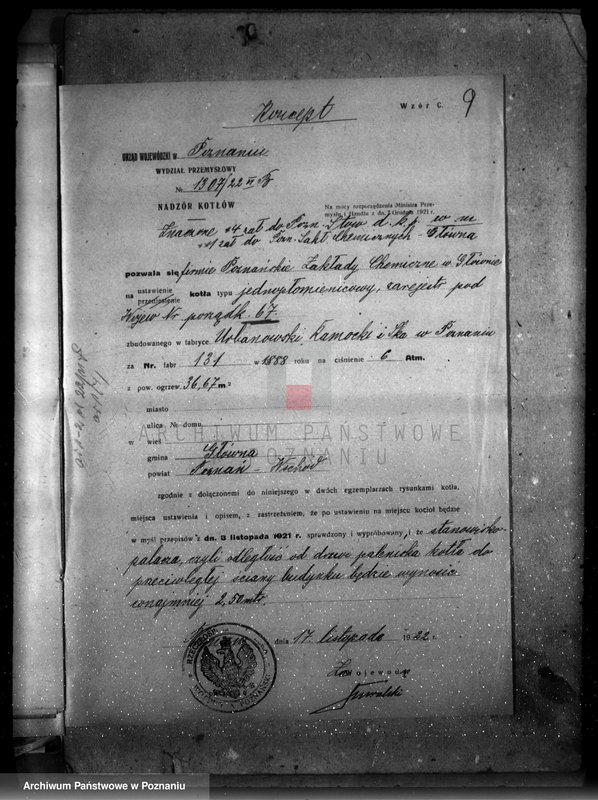 Koncept
Wzór C. 9
URZĄD WOJEWÓDZKI w Poznaniu
WYDZIAŁ PRZEMYSŁOWY
№ 1307/22 VI
NADZÓR KOTŁÓW
Na mocy rozporządzenia Ministra Prze-
mysłu i Handlu z dn. 7 Grudnia 1921 r.
zał do Pozn. Stow d. k. p. w m
zał do Pozn. Zakł Chemicznych - Główna
pozwala się firmie Poznańskie Zakłady Chemiczne w Głównie
na ustawienie
przeniesienie kotła typu jednopłomienicowy, zarejestr pod
Nr porządk. 67.
zbudowanego w fabryce Urbanowski, Kamocki i Ska w Poznaniu
za Nr. fabr 131 w 1888 roku na ciśnienie 6 Atm.
z pow. ogrzew. 36,67 m²
miasto
ulica № domu
w wieś
gmina Główna
powiat Poznań - Wschód
ARCHIWUM PAŃSTWOWE
W POZNANIU
zgodnie z dołączonemi do niniejszego w dwóch egzemplarzach rysunkami kotła,
miejsca ustawienia i opisem, z zastrzeżeniem, że po ustawieniu na miejscu kocioł będzie
w myśl przepisów z dn. 3 listopada 1921 r. sprawdzony i wypróbowany i że stanowisko
palacza, czyli odległość od drzwi palenicka kotła do
przeciwległej ściany budynku będzie wynosić
conajmniej 2,50 mtr.
dnia 17. listopada 1922 r.
Wojewoda
Archiwum Państwowe w Poznaniu